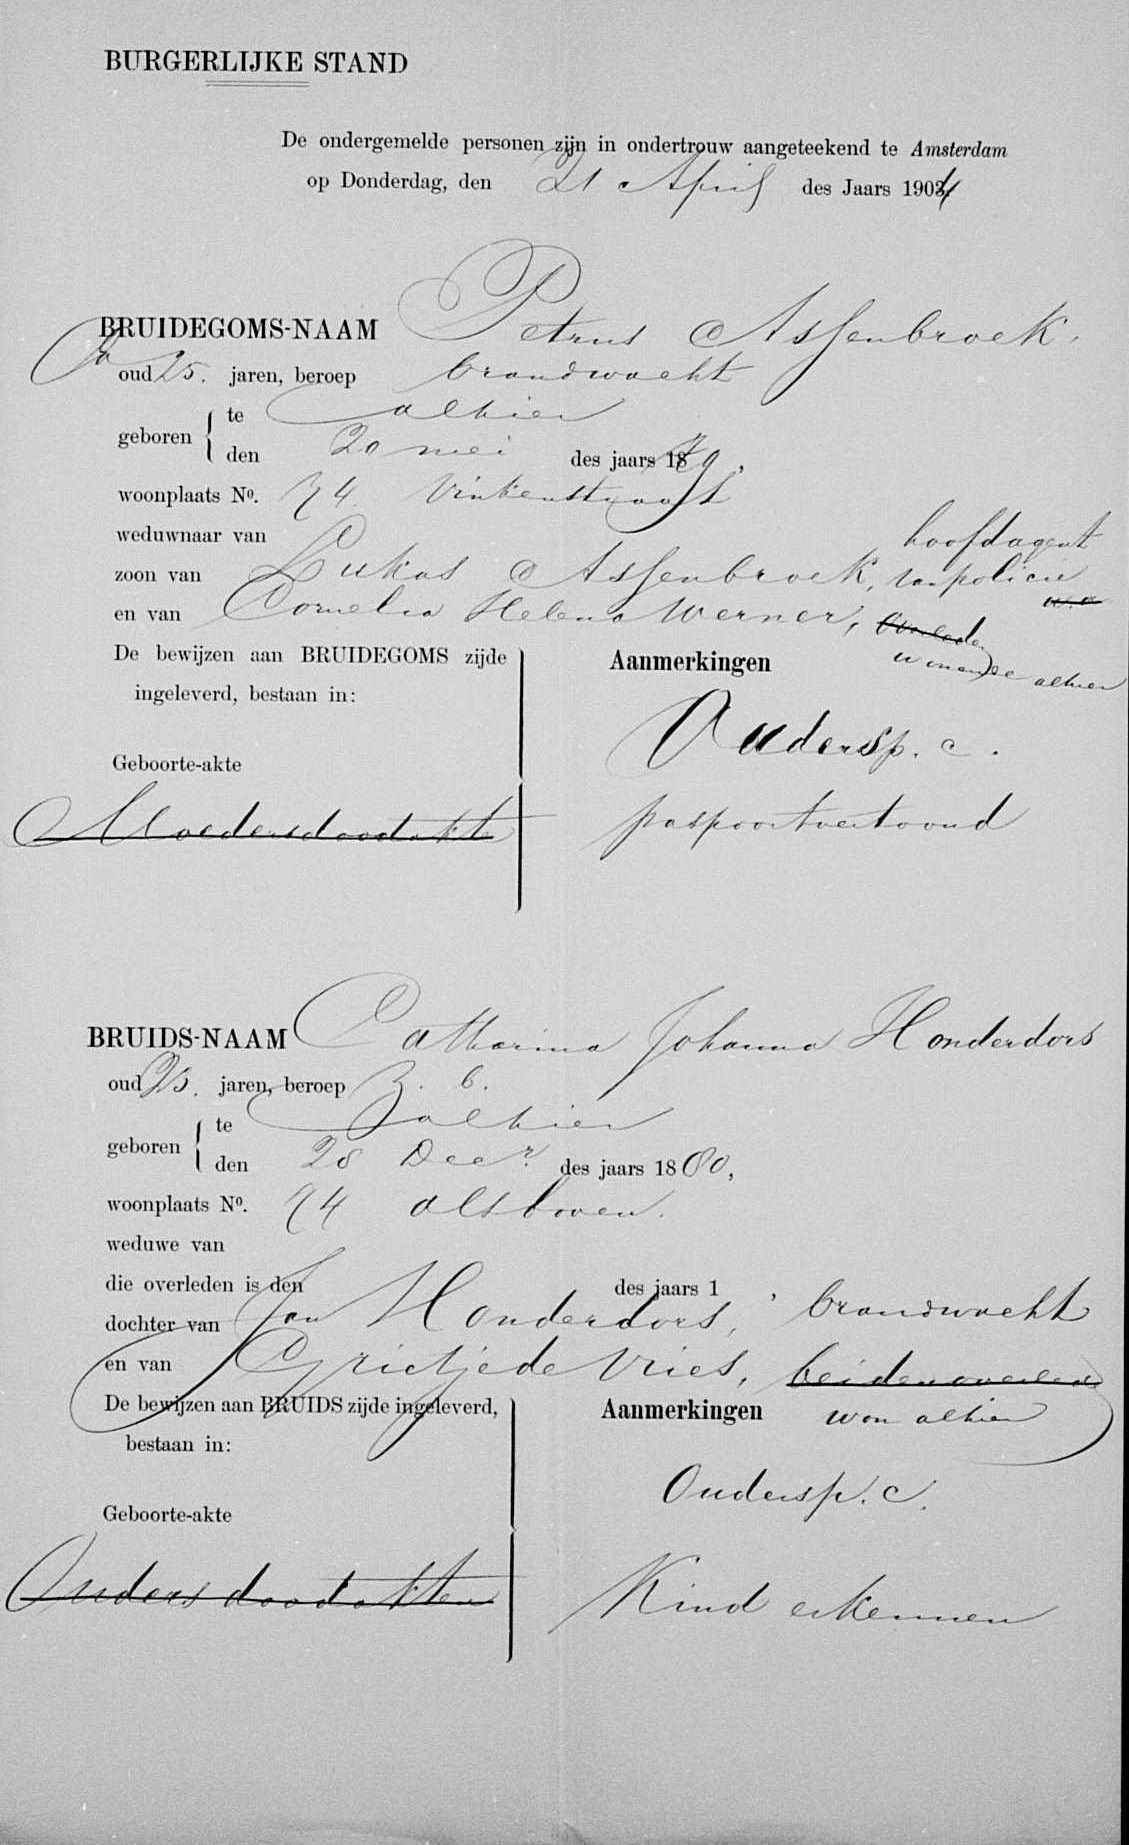 BURGERLIJKE STAND
De ondergemelde personen zijn in ondertrouw aangeteekend te Amsterdam
op Donderdag, den 21 April des Jaars 1904
BRUIDEGOMS-NAAM Petrus Assenbroek.
oud 25. jaren, beroep brandwacht
geboren { te alhier
den 20 mei des jaars 1879.
woonplaats No. 74 Vinkenstraat
weduwnaar van
hoofdagent
zoon van Lukas Assenbroek, van policie
en van Cornelia Helena Werner, overleden
wonende alhier
De bewijzen aan BRUIDEGOMS zijde
ingeleverd, bestaan in:
Aanmerkingen
Oudersp. c.
Geboorte-akte
Moedersdoodakte
paspoort vertoond
BRUIDS-NAAM Catharina Johanna Honderdors
oud 23. jaren, beroep z. b.
geboren { te alhier
den 28 Decr. des jaars 1880,
woonplaats No. 74 alsboven.
weduwe van
die overleden is den des jaars 1 ,
dochter van Jan Honderdors, brandwacht
en van Grietje de Vries, beiden overleden
De bewijzen aan BRUIDS zijde ingeleverd,
bestaan in:
Aanmerkingen won alhier
Oudersp. c.
Geboorte-akte
Ouders doodakten
Kind erkennen